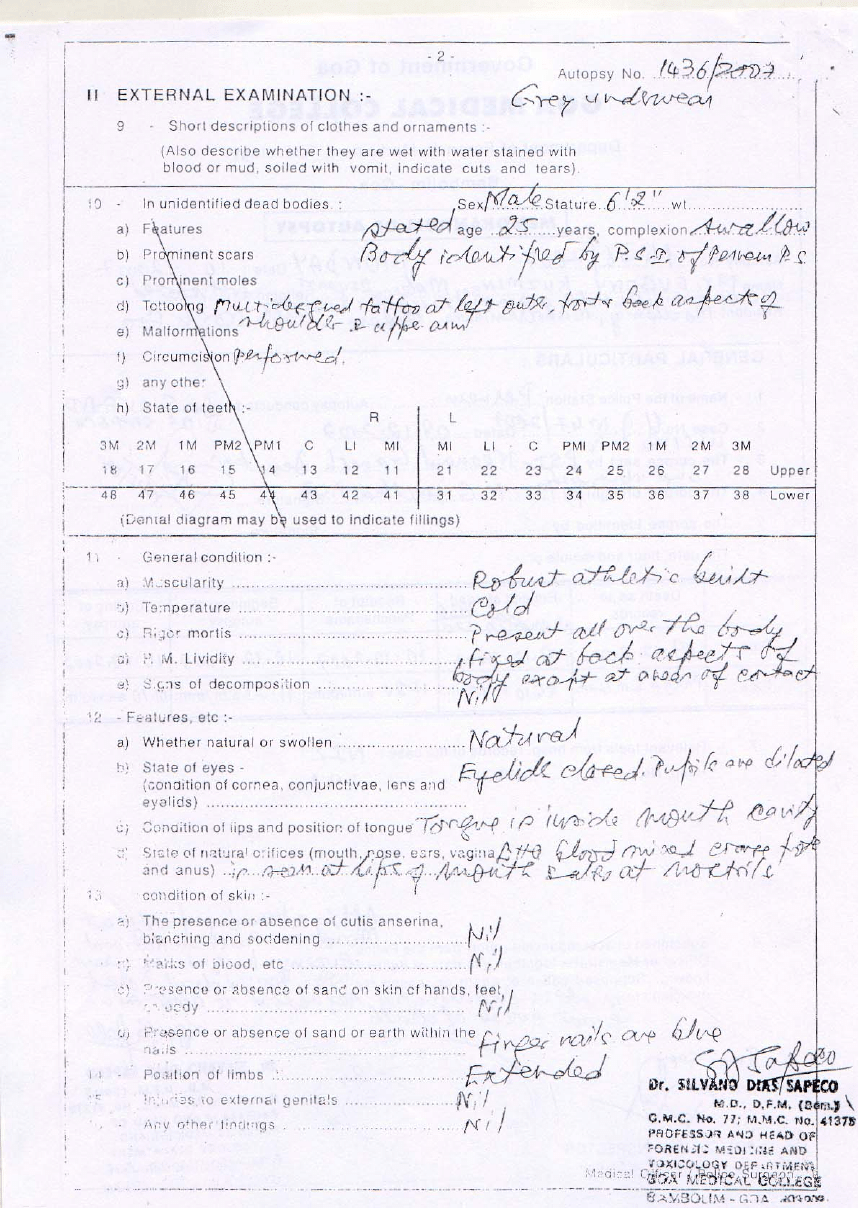 - 2 -
Autopsy No. 1436/2007
II EXTERNAL EXAMINATION :-
Grey underwear
9 - Short descriptions of clothes and ornaments :-
(Also describe whether they are wet with water stained with
blood or mud, soiled with vomit, indicate cuts and tears).
10 - In unidentified dead bodies. : Sex Male Stature 6'2" wt.
a) Features stated age 25 years, complexion swallow
b) Prominent scars Body identified by P.S.I. of Pernem P.S.
c) Prominent moles
d) Tottooing Multidesigned tattoo at left outer, back aspects of
shoulder & arm
e) Malformations
f) Circumcision performed.
g) any other
h) State of teeth :-
R L
3M 2M 1M PM2 PM1 C LI MI MI LI C PMI PM2 1M 2M 3M
18 17 16 15 14 13 12 11 21 22 23 24 25 26 27 28 Upper
48 47 46 45 44 43 42 41 31 32 33 34 35 36 37 38 Lower
(Dental diagram may be used to indicate fillings)
11 - General condition :-
a) Muscularity Robust athletic built
b) Temperature Cold
c) Rigor mortis Present all over the body
d) P.M. Lividity fixed at back aspects of
body except at areas of contact
e) Signs of decomposition Nil
12 - Features, etc :-
a) Whether natural or swollen Natural
b) State of eyes - Eyelids closed. Pupils are dilated
(condition of cornea, conjunctivae, lens and
eyelids)
c) Condition of lips and position of tongue Tongue is inside mouth cavity
d) State of natural orifices (mouth, nose, ears, vagina blood mixed
and anus) is seen at lips of mouth & also at nostrils
13 condition of skin :-
a) The presence or absence of cutis anserina,
blanching and soddening Nil
b) Marks of blood, etc Nil
c) Presence or absence of sand on skin of hands, feet
or body Nil
d) Presence or absence of sand or earth within the
nails finger nails are blue
14 Position of limbs Extended
15 Injuries to external genitals Nil
Any other findings Nil
Dr. SILVANO DIAS SAPECO
M.D., D.F.M. (Bom.)
G.M.C. No. 77; M.M.C. No. 41375
PROFESSOR AND HEAD OF
FORENSIC MEDICINE AND
TOXICOLOGY DEPARTMENT
Medical Officer / Police Surgeon
GOA MEDICAL COLLEGE
BAMBOLIM - GOA